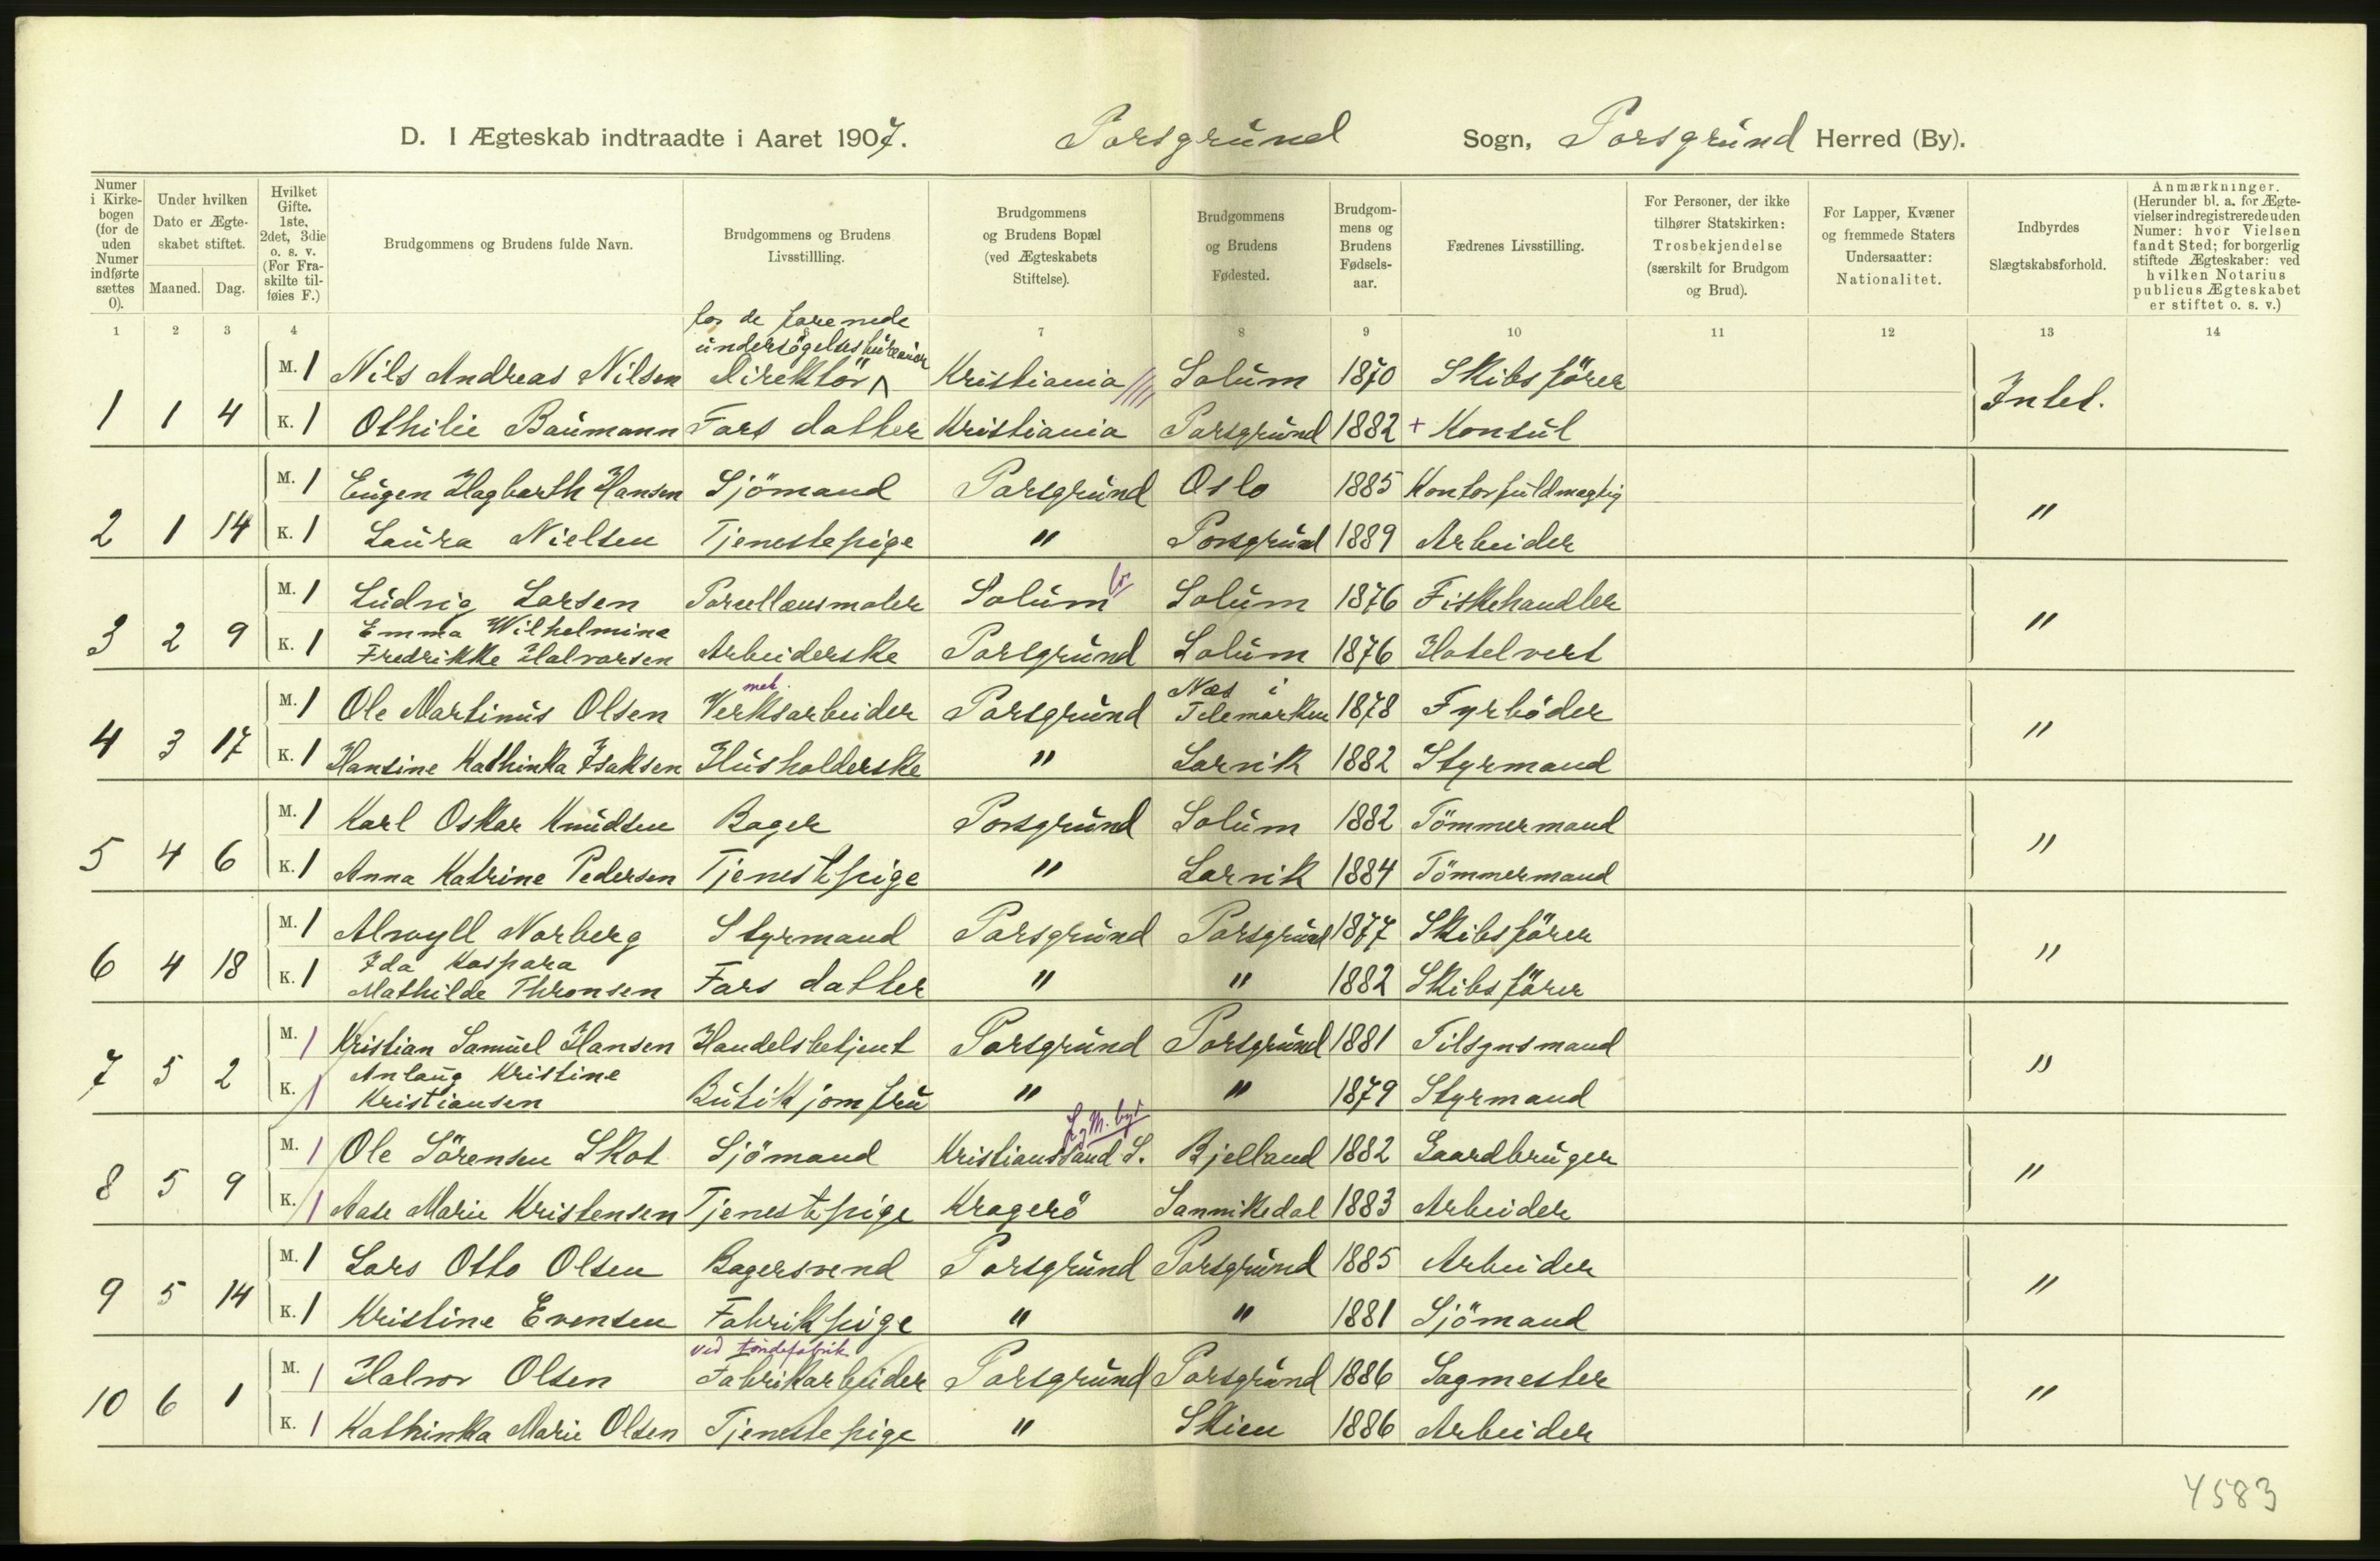 D. I Ægteskab indtraadte i Aaret 1907. Porsgrund Sogn, Porsgrund Herred (By).
Numer i Kirkebogen (for de uden Numer indførte sættes 0). Under hvilken Dato er Ægteskabet stiftet. Maaned. Dag. Hvilket Gifte. 1ste, 2det, 3die o. s. v. (For Fraskilte tilføies F.) Brudgommens og Brudens fulde Navn. Brudgommens og Brudens Livsstillling. Brudgommens og Brudens Bopæl (ved Ægteskabets Stiftelse). Brudgommens og Brudens Fødested. Brudgommens og Brudens Fødselsaar. Fædrenes Livsstilling. For Personer, der ikke tilhører Statskirken: Trosbekjendelse (særskilt for Brudgom og Brud). For Lapper, Kvæner og fremmede Staters Undersaatter: Nationalitet. Indbyrdes Slægtskabsforhold. Anmærkninger. (Herunder bl. a. for Ægtevielser indregistrerede uden Numer: hvor Vielsen fandt Sted; for borgerlig stiftede Ægteskaber: ved hvilken Notarius publicus Ægteskabet er stiftet o. s. v.)
1 2 3 4 7 8 9 10 11 12 13 14
for de forenede
undersögelsesbureauer
M. 1 Nils Andreas Nilsen Direktör Kristiania Solum 1870 Skibsförer
1 1 4 Intet.
K. 1 Othilie Baumann Fars datter Kristiania Porsgrund 1882 + Konsul
M. 1 Eugen Hagbarth Hansen Sjömand Porsgrund Oslo 1885 Kontorfuldmægtig
2 1 14 K. 1 Laura Nielsen Tjenestepige " Porsgrund 1889 Arbeider "
M. 1 Ludvig Larsen Porcellænsmaler Solum Solum 1876 Fiskehandler
3 2 9 K. 1 Emma Wilhelmine "
Fredrikke Halvorsen Arbeiderske Porsgrund Solum 1876 Hotelvert
mek. Næs i
M. 1 Ole Martinus Olsen Verksarbeider Porsgrund Telemarken 1878 Fyrböder
4 3 17 K. 1 Hansine Kathinka Isaksen Husholderske " Larvik 1882 Styrmand "
M. 1 Karl Oskar Knudsen Bager Porsgrund Solum 1882 Tömmermand
5 4 6 K. 1 Anna Katrine Pedersen Tjenestepige " Larvik 1884 Tömmermand "
M. 1 Alwyll Norberg Styrmand Porsgrund Porsgrund 1877 Skibsförer
6 4 18 K. 1 Ida Kaspara "
Mathilde Thronsen Fars datter " " 1882 Skibsförer
M. 1 Kristian Samuel Hansen Handelsbetjent Porsgrund Porsgrund 1881 Tilsynsmand
7 5 2 K. 1 Anlaug Kristine "
Kristiansen Butikjomfru " " 1879 Styrmand
M. 1 Ole Sörensen Skot Sjömand Kristianssand S. Bjelland 1882 Gaardbruger
8 5 9 K. 1 Aase Marie Kristensen Tjenestepige Kragerö Sannikedal 1883 Arbeider "
M. 1 Lars Otto Olsen Bagersvend Porsgrund Porsgrund 1885 Arbeider
9 5 14 K. 1 Kristine Evensen Fabrikpige " " 1881 Sjömand "
ved töndefabrik
M. 1 Halvor Olsen Fabrikarbeider Porsgrund Porsgrund 1886 Sagmester
10 6 1 K. 1 Kathinka Marie Olsen Tjenestepige " Skien 1886 Arbeider "
4583